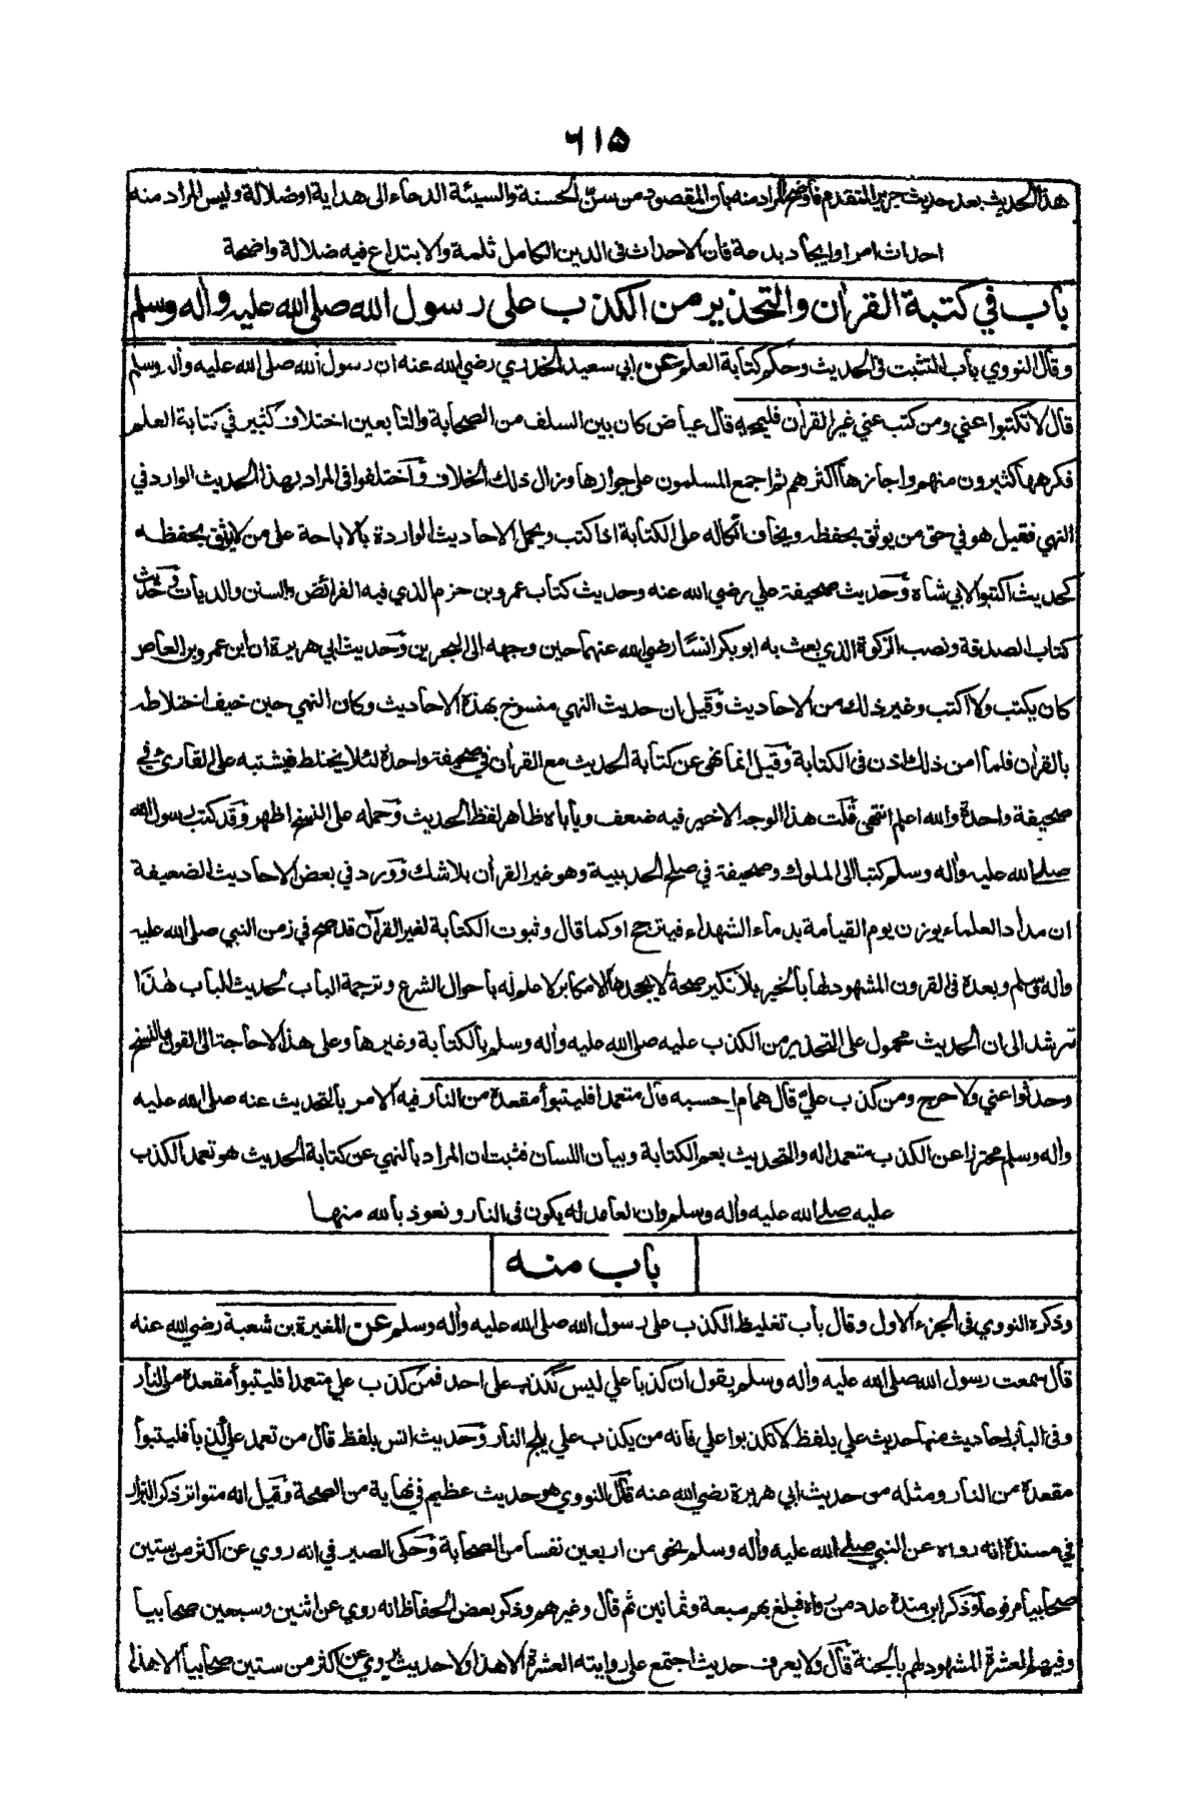 ٦١٥
هذا الحديث بعد حديث جرير المتقدم فأوضح المراد منه بان المقصود من سن الحسنة والسيئة الدعاء الى هداية او ضلالة وليس المراد منه
احداث امر او ايجاد بدعة فان الاحداث فى الدين الكامل ثلمة والابتداع فيه ضلالة واضحة
باب في كتبة القرأن والتحذير من الكذب على رسول الله صلى الله عليه وأله وسلم
وقال النووي باب التثبت فى الحديث وحكم كتابة العلم عن ابي سعيد الخدري رضي الله عنه ان رسول الله صلى الله عليه وأله وسلم
قال لا تكتبوا عني ومن كتب عني غير القرأن فليمحه قال عياض كان بين السلف من الصحابة والتابعين اختلاف كثير في كتابة العلم
فكرهها كثيرون منهم واجازها اكثرهم ثم اجمع المسلمون على جوازها وزال ذلك الخلاف واختلفوا فى المراد بهذا الحديث الوارد في
النهي فقيل هو في حق من يوثق بحفظه ويخاف اتكاله على الكتابة اذا كتب ويحمل الاحاديث الواردة بالاباحة على من لا يوثق بحفظه
كحديث اكتبوا لابي شاه وحديث صحيفة علي رضي الله عنه وحديث كتاب عمرو بن حزم الذي فيه الفرائض والسنن والديات وحديث
كتاب الصدقة ونصب الزكوة الذي بعث به ابو بكر انسا رضي الله عنهما حين وجهه الى البحرين وحديث ابي هريرة ان ابن عمرو بن العاص
كان يكتب ولا اكتب وغير ذلك من الاحاديث وقيل ان حديث النهي منسوخ بهذه الاحاديث وكان النهي حين خيف اختلاطه
بالقرأن فلما امن ذلك اذن فى الكتابة وقيل انما نهى عن كتابة الحديث مع القرأن في صحيفة واحدة لئلا يختلط فيشتبه على القارئ في
صحيفة واحدة والله اعلم انتهى قلت هذا الوجه الاخير فيه ضعف ويأباه ظاهر لفظ الحديث وحمله على النسخ اظهر وقد كتب رسول الله
صلى الله عليه وأله وسلم كتبا الى الملوك وصحيفة في صلح الحديبية وهو غير القرأن بلا شك وورد في بعض الاحاديث الضعيفة
ان مداد العلماء يوزن يوم القيامة بدماء الشهداء فيترجح او كما قال وثبوت الكتابة لغير القرأن قد صح في زمن النبي صلى الله عليه
وأله وسلم وبعده فى القرون المشهود لها بالخير بلا نكير صحة لا يجحدها الا مكابر لا علم له بأحوال الشرع وترجمة الباب لحديث الباب هذا
ترشد الى ان الحديث محمول على التحذير من الكذب عليه صلى الله عليه وأله وسلم بالكتابة وغيرها وعلى هذا لا حاجة الى القول بالنسخ
وحدثوا عني ولا حرج ومن كذب عليّ قال همام احسبه قال متعمدا فليتبوأ مقعده من النار فيه الامر بالتحديث عنه صلى الله عليه
وأله وسلم محترزا عن الكذب متعمدا له والتحديث يعم الكتابة وبيان اللسان فثبت ان المراد بالنهي عن كتابة الحديث هو تعمد الكذب
عليه صلى الله عليه وأله وسلم وان العامد له يكون فى النار ونعوذ بالله منها
باب منه
وذكره النووي فى الجزء الاول وقال باب تغليظ الكذب على رسول الله صلى الله عليه وأله وسلم عن المغيرة بن شعبة رضي الله عنه
قال سمعت رسول الله صلى الله عليه وأله وسلم يقول ان كذبا علي ليس ككذب على احد فمن كذب علي متعمدا فليتبوأ مقعده من النار
وفى الباب احاديث منها حديث علي بلفظ لا تكذبوا علي فانه من يكذب علي يلج النار وحديث انس بلفظ قال من تعمد علي كذبا فليتبوأ
مقعده من النار ومثله من حديث ابي هريرة رضي الله عنه قال النووي هو حديث عظيم في نهاية من الصحة وقيل انه متواتر ذكر البزار
في مسنده انه رواه عن النبي صلى الله عليه وأله وسلم نحو من اربعين نفسا من الصحابة وحكى الصيرفي انه روي عن اكثر من ستين
صحابيا مرفوعا وذكر ابن منده عدد من رواه فبلغ بهم سبعة وثمانين ثم قال وغيرهم وذكر بعض الحفاظ انه روي عن اثنين وسبعين صحابيا
وفيهم العشرة المشهود لهم بالجنة قال ولا يعرف حديث اجتمع على روايته العشرة الا هذا ولا حديث يروي عن اكثر من ستين صحابيا الا هذا